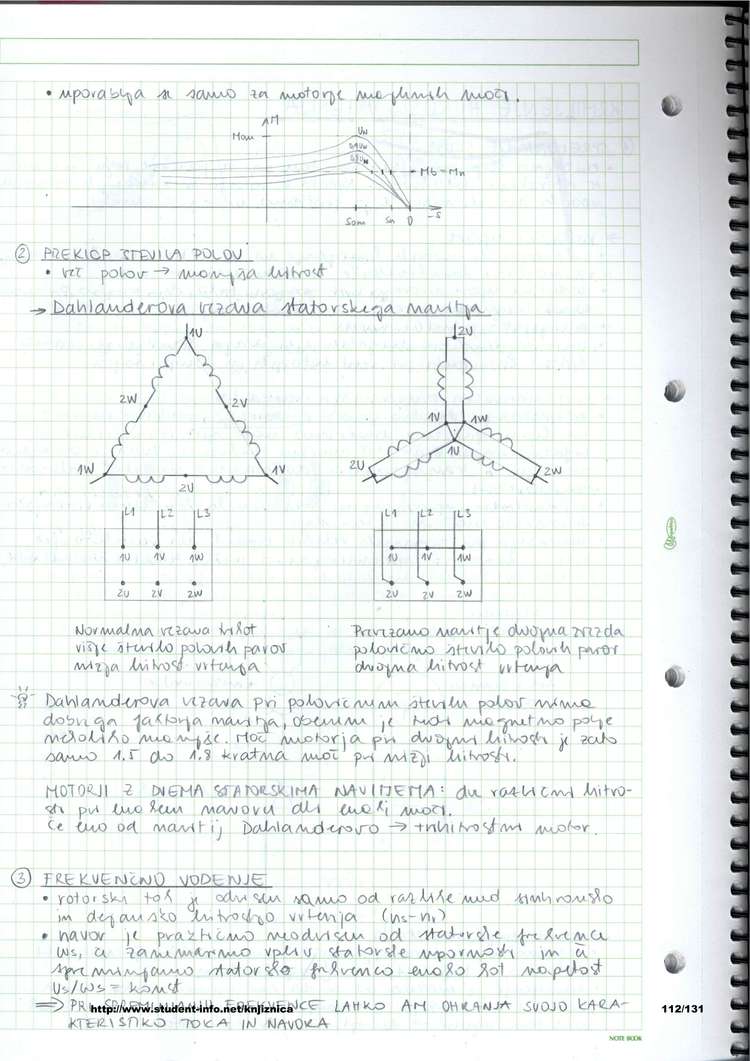 • uporablja se samo za motorje majhnih moči.
M
Mom
UN
0,9UN
0,8UN
Mb=Mn
Som Sn 0 -S
② PREKLOP ŠTEVILA POLOV
• več polov → manjša hitrost
→ Dahlanderova vezava statorskega navitja
1U
2W 2V
1W 2U 1V
2U
1V 1W
1U
2U 2W
L1 L2 L3
1U 1V 1W
2U 2V 2W
L1 L2 L3
1U 1V 1W
2U 2V 2W
Normalna vezava trikot
višje število polovih parov
nizja hitrost vrtenja
Prevezano navitje dvojna zvezda
polovično število polovih parov
dvojna hitrost vrtenja
Dahlanderova vezava pri polovičnem številu polov nima
dobrega faktorja navitja, obenem je tudi magnetno polje
nekoliko manjše. Moč motorja pri dvojni hitrosti je zato
samo 1.5 do 1.8 kratna moč pri nižji hitrosti.
MOTORJI Z DVEMA STATORSKIMA NAVITJEMA: dve različni hitro-
sti pri enakem navoru ali enaki moči.
Če eno od navitij Dahlanderovo → trihitrostni motor.
③ FREKVENČNO VODENJE
• rotorski tok je odvisen samo od razlike med sinhronsko
in dejansko hitrostjo vrtenja (ns-nr)
• navor je praktično neodvisen od statorske frekvence
ws, če zanemarimo vpliv statorske upornosti in če
spreminjamo statorsko frekvenco enako kot napetost
Us/ws = konst
⇒ PRI SPREMINJANJU FREKVENCE LAHKO AM OHRANJA SVOJO KARA-
KTERISTIKO TOKA IN NAVORA
http://www.student-info.net/knjiznica
112/131
NOTE BOOK